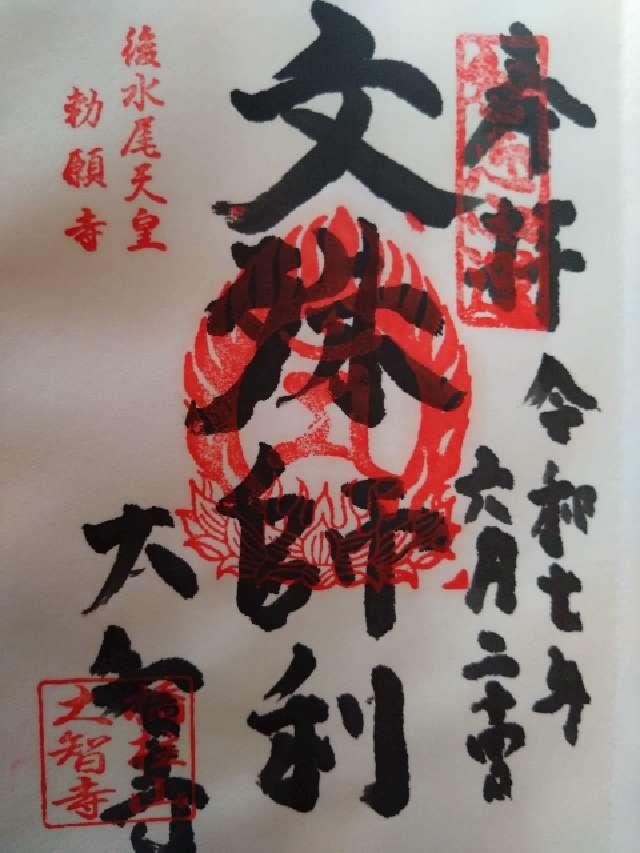 奉拝
令和七年
六月二十
文殊師利
大智寺
後水尾天皇
勅願寺
橋柱山
大智寺